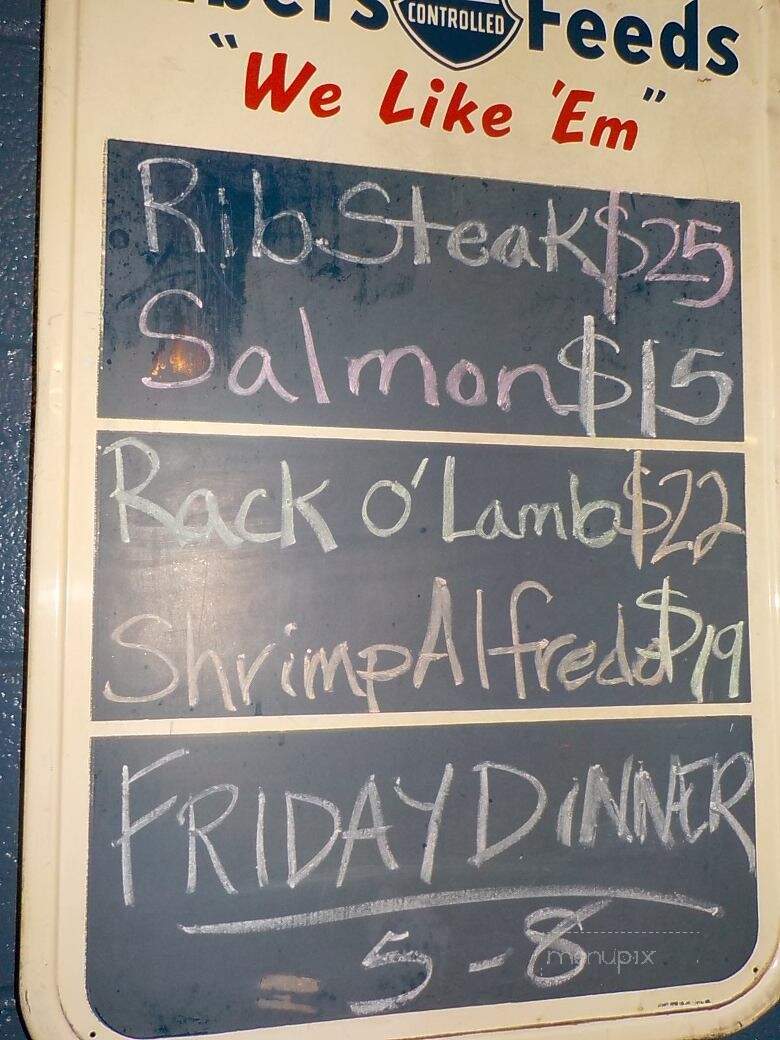 CONTROLLED
Feeds
"We Like 'Em"
Rib Steak $25
Salmon $15
Rack o' Lamb $22
Shrimp Alfredo $19
FRIDAY DiNNER
5-8
menupix